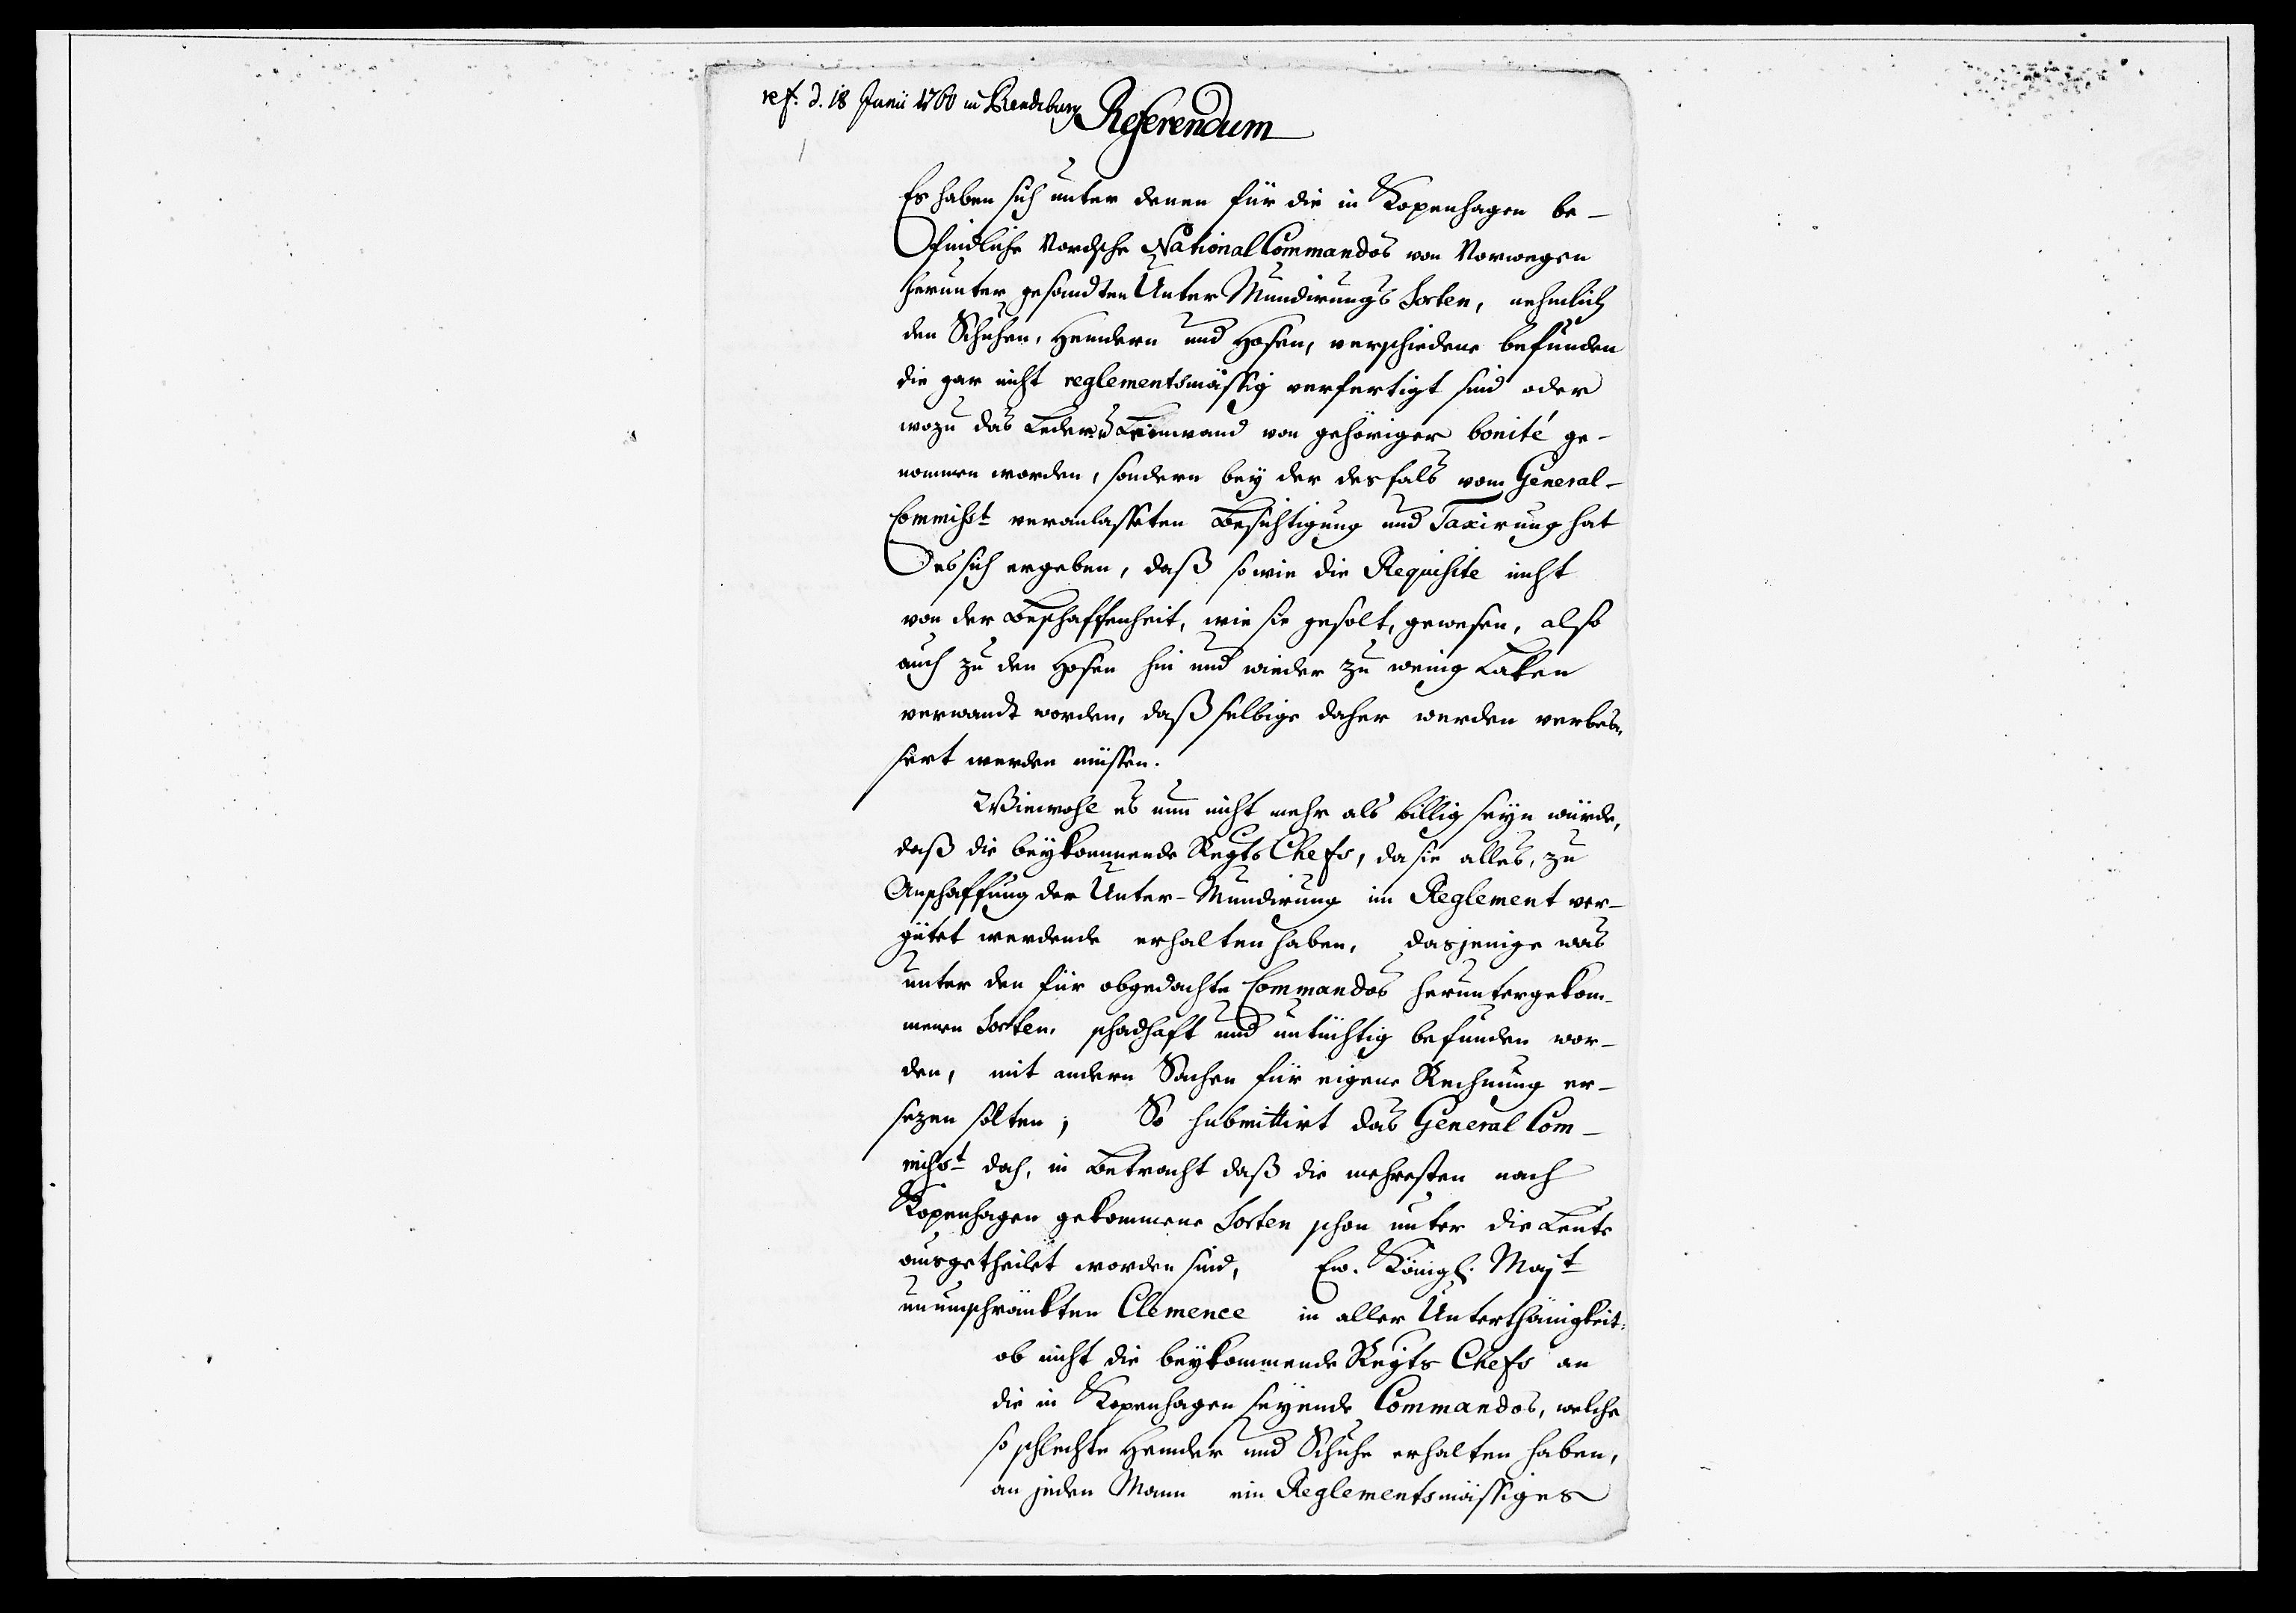 ref. d. 18 Junii 1760 in Rendsburg
Referendum
Es haben sich unter denen für die in Kopenhagen be-
findliche Nordsche National Commandos von Norwegen
herunter gesandten Unter Mundirungs Sorten, nehmlich
den Schuhen, Hemdern und Hosen, verschiedene befunden
die gar nicht reglementsmässig verfertigt sind oder
wozu das Leder u. Leinwand von gehöriger bonité ge-
nommen worden, sondern bey der desfals vom General-
Commisst veranlasseten Besichtigung und Taxirung hat
es sich ergeben, daß so wie die Requisite nicht
von der Beschaffenheit, wie sie gesolt, gewesen, also
auch zu den Hosen hin und wieder zu wenig Laken
verwandt worden, daß selbige daher werden verbes-
sert werden müssen.
Wiewohl es nun nicht mehr als billig seyn würde,
daß die beykommende Regts Chefs, da sie alles, zu
Anschaffung der Unter-Mundirung im Reglement ver-
gütet werdende erhalten haben, dasjenige was
unter den für obgedachte Commandos heruntergekom-
menen Sorten, schadhaft und untüchtig befunden wor-
den, mit andern Sachen für eigene Rechnung er-
sezen solten; So submittirt das General Com-
misst doch, in Betracht daß die mehresten nach
Kopenhagen gekommene Sorten schon unter die Leute
ausgetheilet worden sind, Ew. Königl. Majt
unumschränkten Clemence in aller Unterthänigkeit:
ob nicht die beykommende Regts Chefs an
die in Kopenhagen seyende Commandos, welche
so schlechte Hemder und Schuhe erhalten haben,
an jeden Mann ein Reglementsmässiges